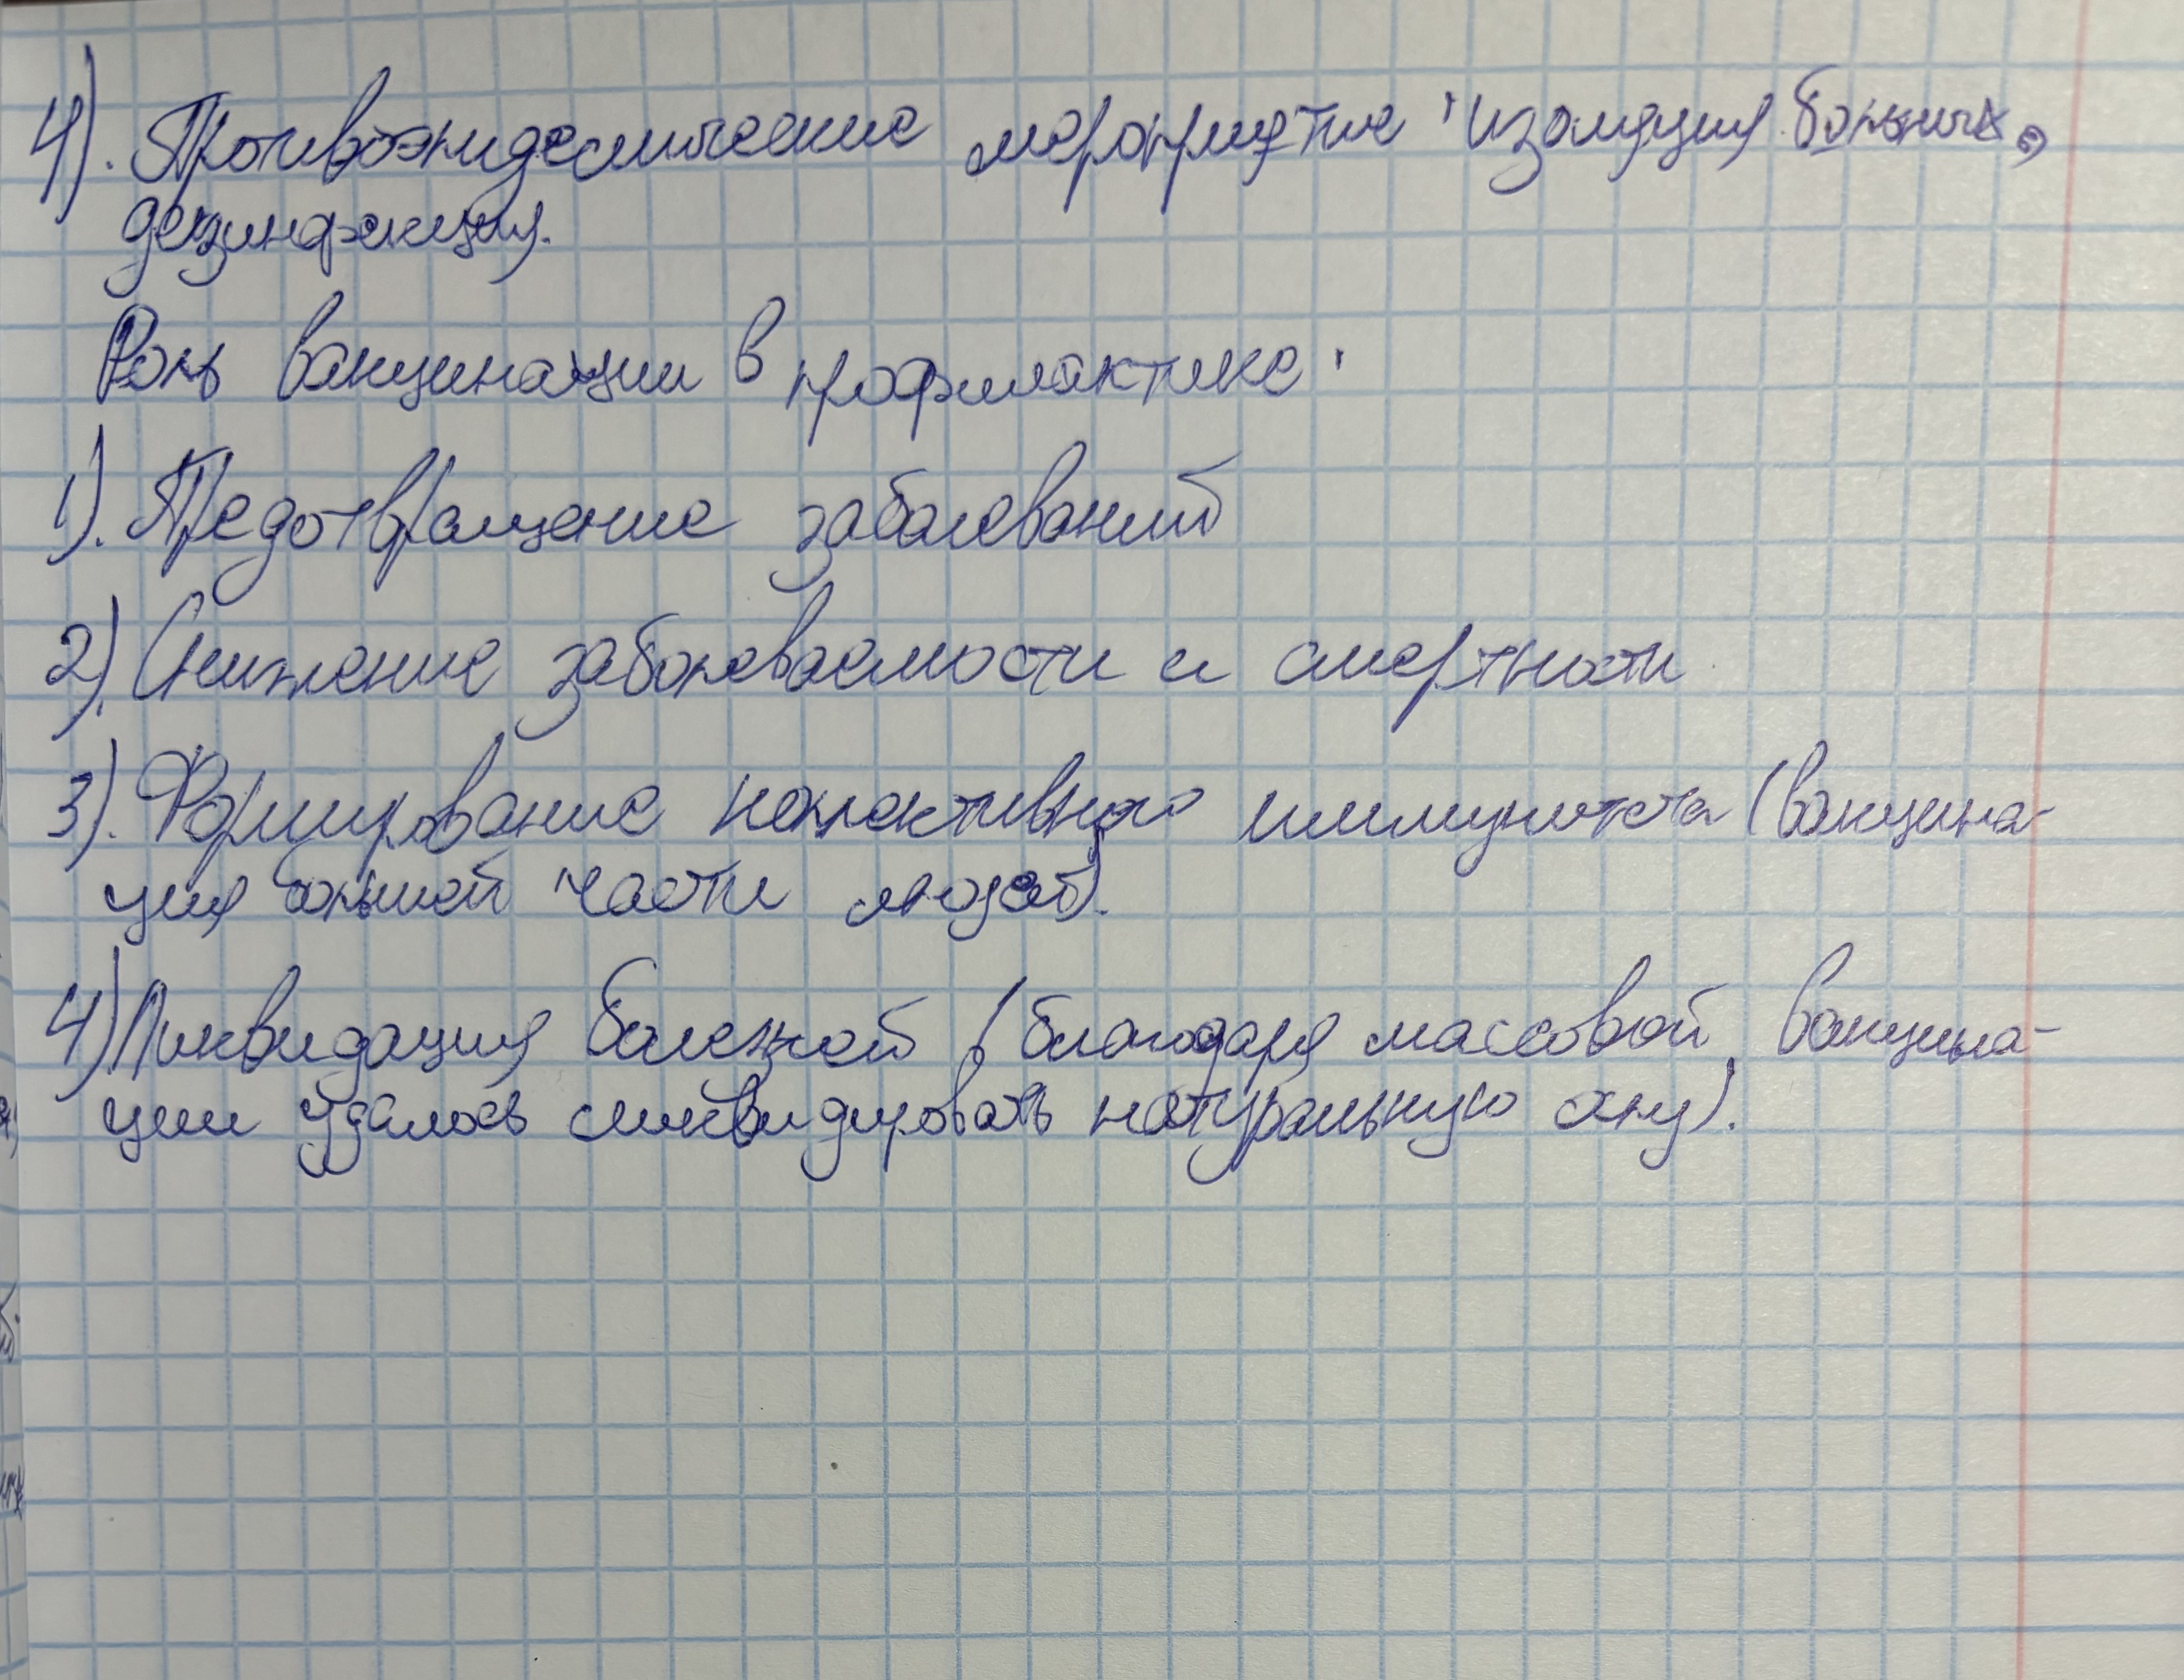 4). Противоэпидемические мероприятие: изоляция больных,
дезинфекция.
Роль вакцинации в профилактике:
1). Предотвращение заболеваний
2). Снижение заболеваемости и смертности
3). Формирование коллективного иммунитета (вакцина-
ция большей части людей).
4) Ликвидация болезней (благодаря массовой вакцина-
ции удалось ликвидировать натуральную оспу).